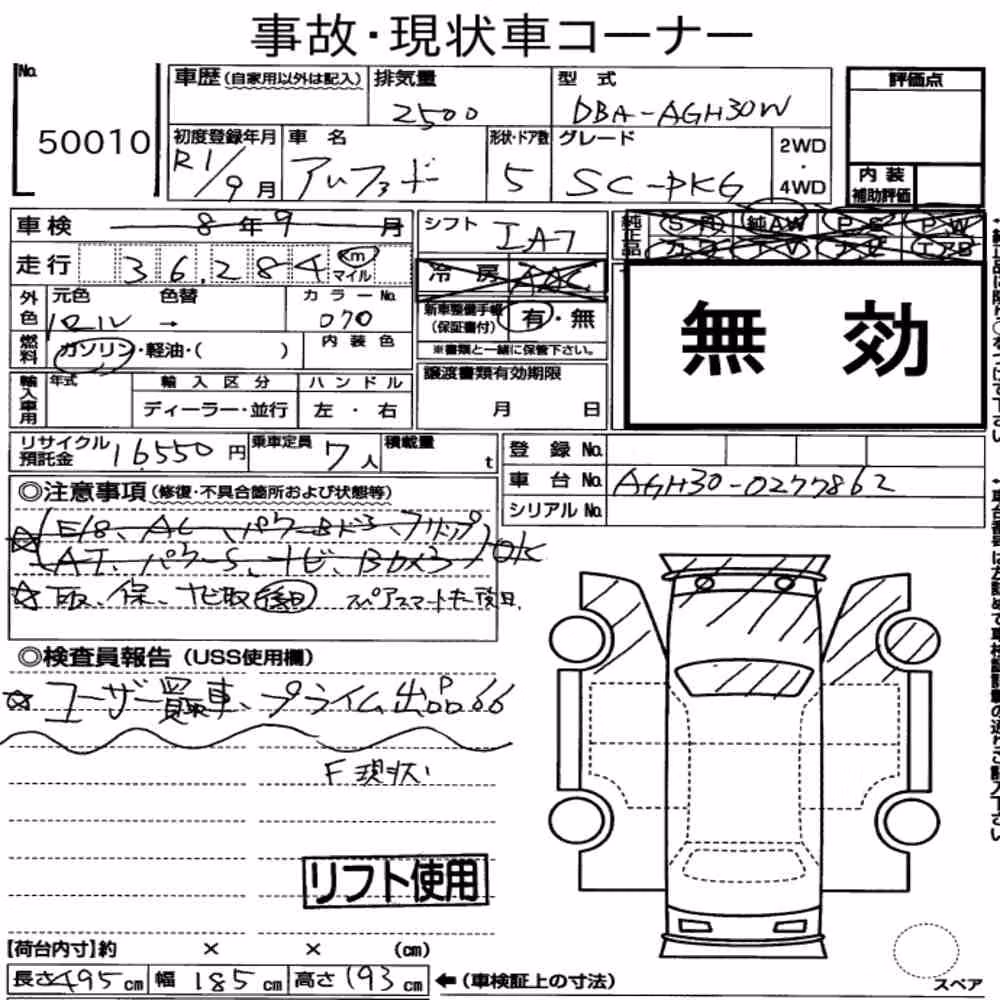 事故・現状車コーナー
No. 50010
車歴(自家用以外は記入) 排気量 2500 型式 DBA-AGH30W 評価点
初度登録年月 R1/9月 車名 アルファード 形状・ドア数 5 グレード SC-PKG 2WD・4WD 内装補助評価
車検 8年9月 シフト IA7 純正品 純AW P.S P.W TV エアB
走行 36,284 km マイル 冷房 AAC
外色 元色 色替 → カラーNo. 070 新車整備手帳(保証書付) 有・無
燃料 ガソリン・軽油・( ) 内装色 ※書類と一緒に保管下さい。
無効
輸入車用 年式 輸入区分 ディーラー・並行 ハンドル 左・右 譲渡書類有効期限 月 日
リサイクル預託金 16,550円 乗車定員 7人 積載量 t 登録No.
車台No. AGH30-0277862
シリアルNo.
◎注意事項(修復・不具合箇所および状態等)
☆(E/g、AC、パワーBドア3、フリップ
AT、パワーS、ナビ、Bカメラ)OK
☆取、保、ナビ取後日 スペアスマートキー後日
◎検査員報告(USS使用欄)
☆ユーザー買取車、プライム出品66
F現状
リフト使用
【荷台内寸】約 × × (cm)
長さ495cm 幅185cm 高さ193cm ←(車検証上の寸法)
スペア